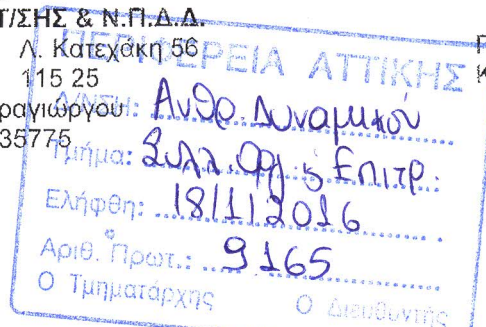 Τ/ΣΗΣ & Ν.Π.Δ.Δ.
Λ. Κατεχάκη 56
115 25
ραγιώργου
35775
ΠΕΡΙΦΕΡΕΙΑ ΑΤΤΙΚΗΣ
Δ/ΝΣΗ: Ανθρ. Δυναμικού
Τμήμα: Συλλ. Οργ. & Επιτρ.
Ελήφθη: 18/1/2016
Αριθ. Πρωτ.: 9165
Ο Τμηματάρχης Ο Διευθυντής